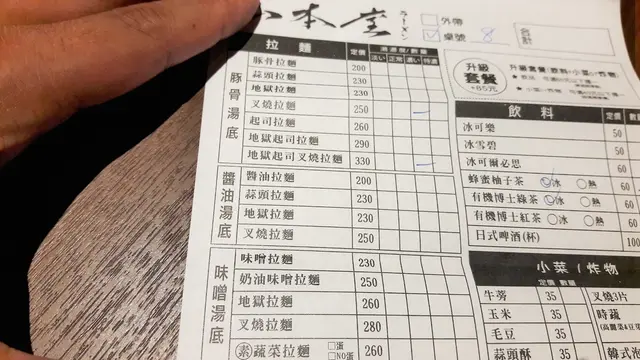 本堂
ラーメン
外帶
桌號 8
合計
拉麵 定價 湯濃度/數量
淡い 正常 濃い 特濃
豚骨湯底
豚骨拉麵 200
蒜頭拉麵 230
地獄拉麵 230
叉燒拉麵 250
起司拉麵 260
地獄起司拉麵 290
地獄起司叉燒拉麵 330
醬油湯底
醬油拉麵 200
蒜頭拉麵 230
地獄拉麵 230
叉燒拉麵 250
味噌湯底
味噌拉麵 230
奶油味噌拉麵 250
地獄拉麵 260
叉燒拉麵 280
素蔬菜拉麵 □蛋 □NO蛋 260
升級套餐
+85元
升級套餐(飲料+小菜or炸物)
飲料 定價 數
冰可樂 50
冰雪碧 50
冰可爾必思 60
蜂蜜柚子茶 ○冰 ○熱 60
有機博士綠茶 ○冰 ○熱 60
有機博士紅茶 ○冰 ○熱 60
日式啤酒(杯) 100
小菜/炸物
定價 數量
牛蒡 35 叉燒3片
玉米 35 時蔬
毛豆 35
蒜頭酥 35